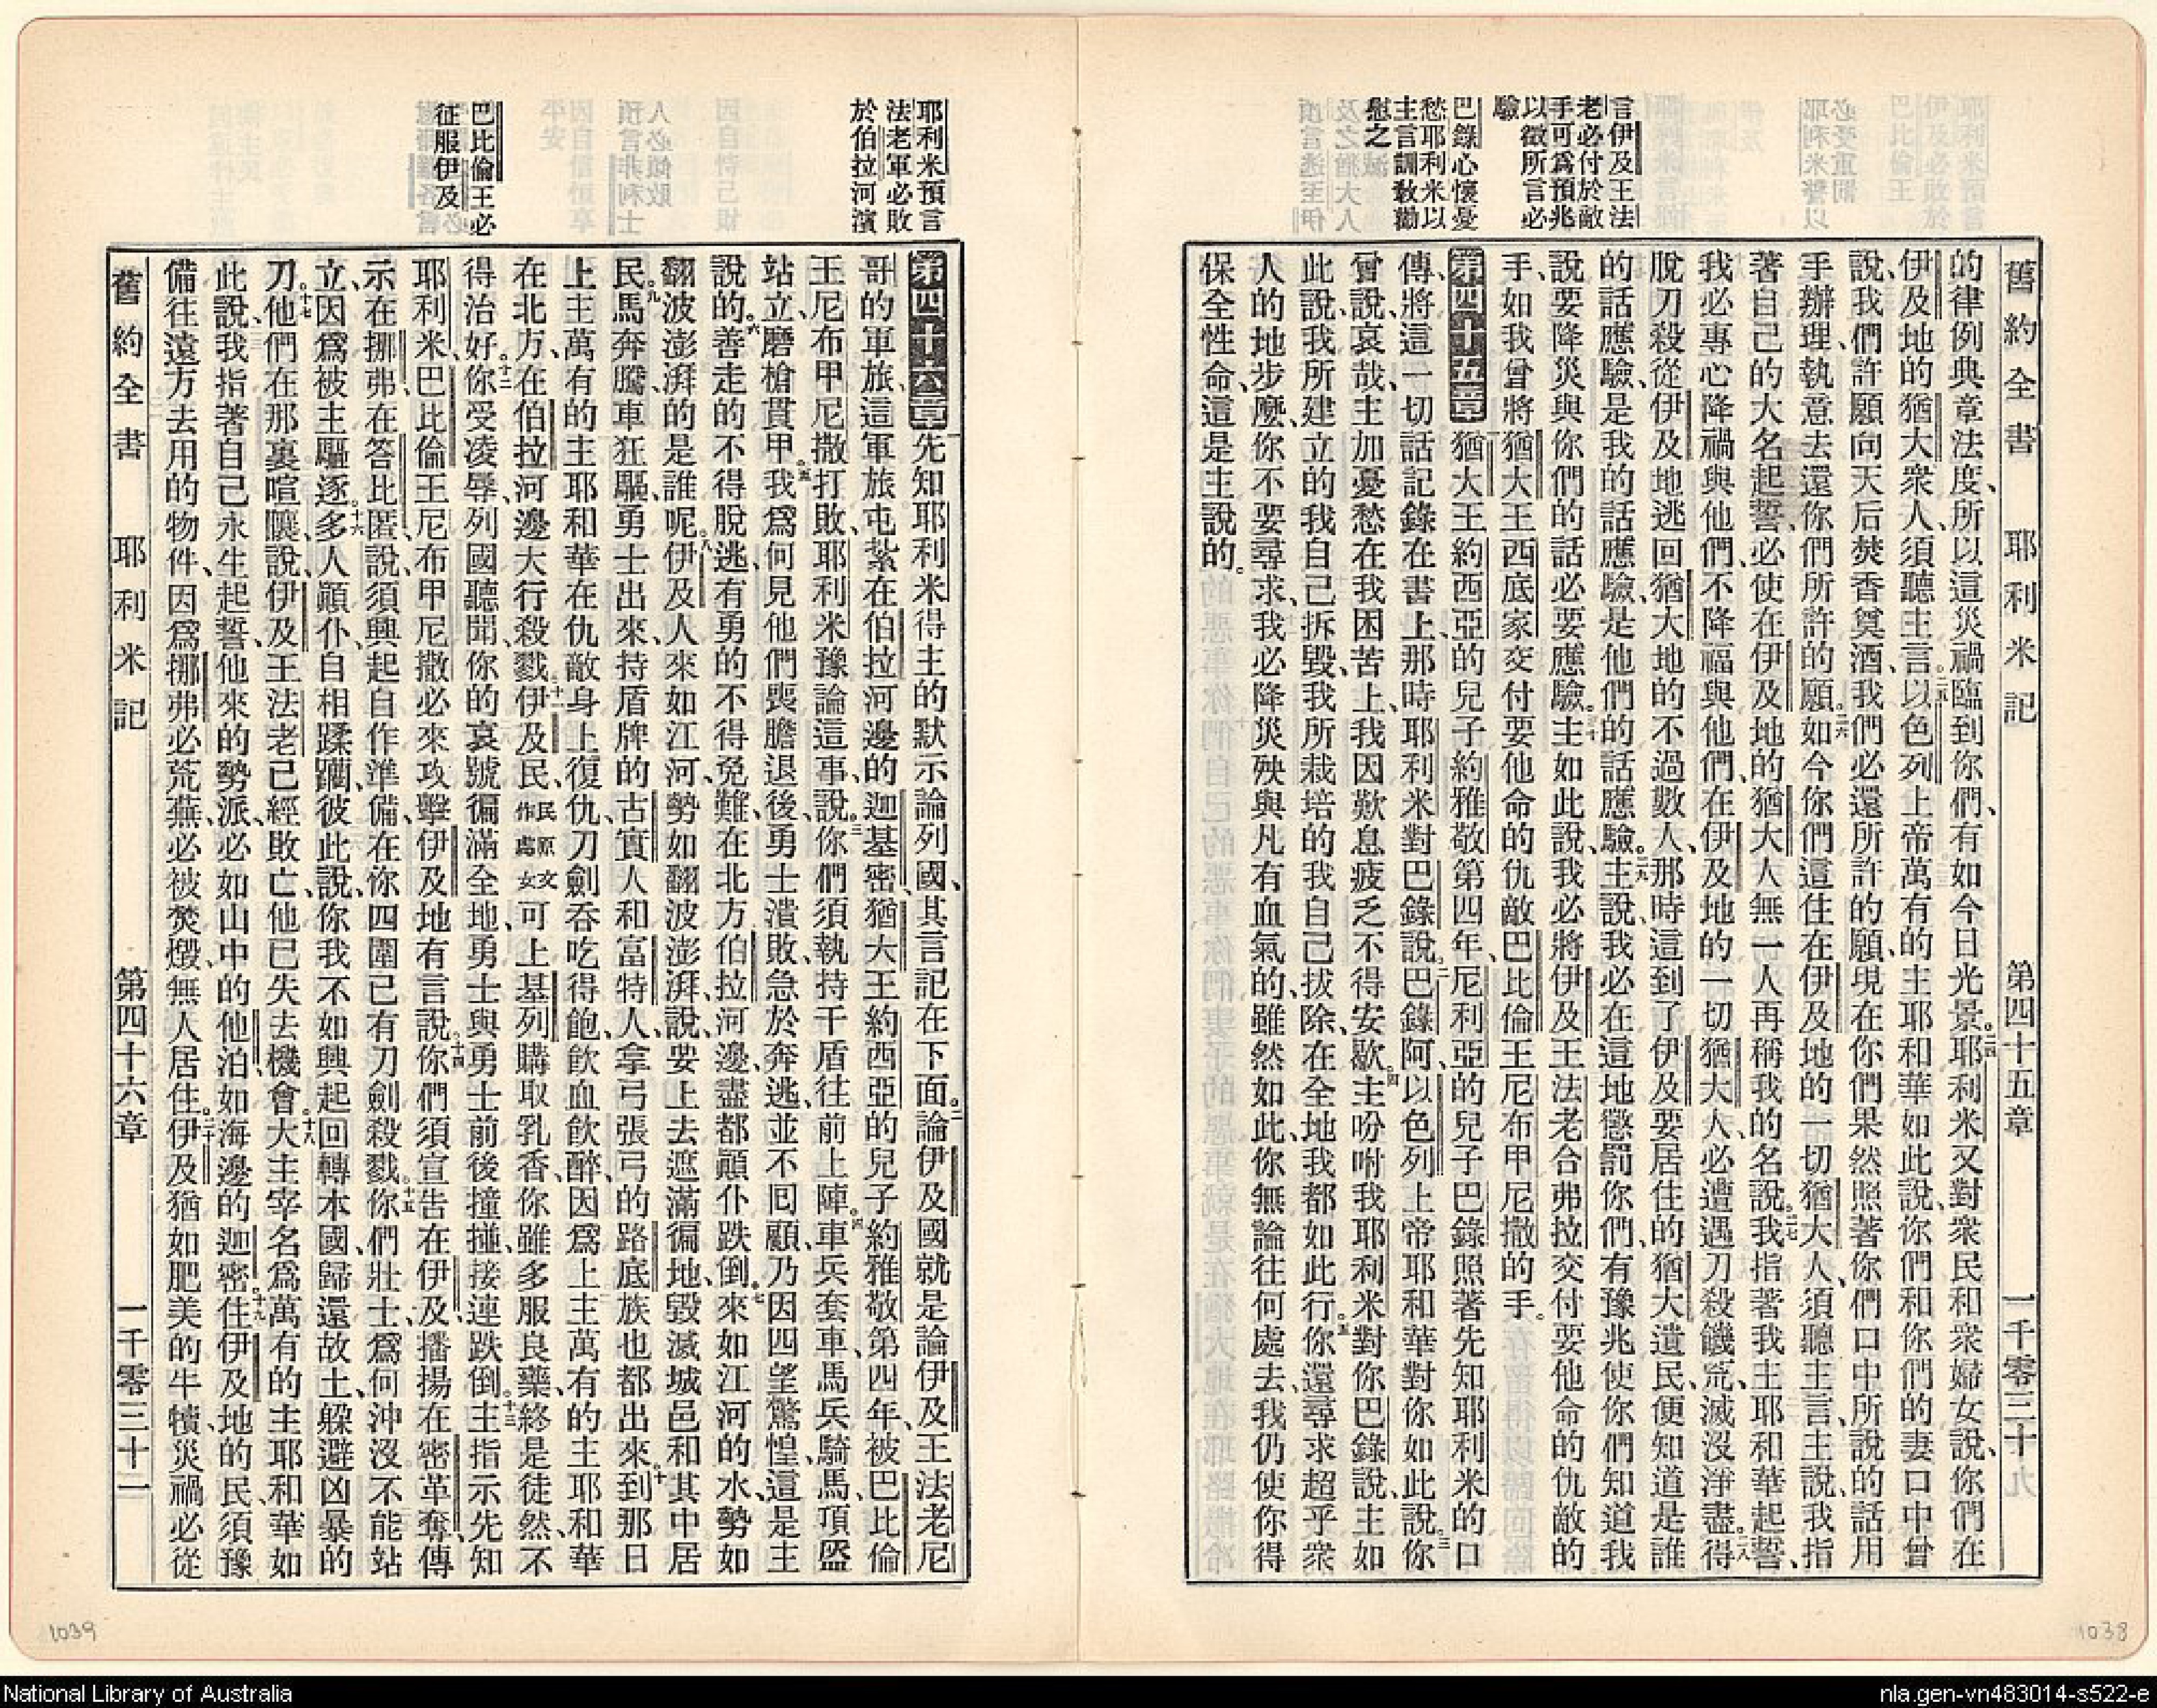 言伊及王法
老必付於敵
手可爲預兆
以徵所言必
驗
巴錄心懷憂
愁耶利米以
主言訓敎勸
慰之
舊約全書 耶利米記 第四十五章 一千零三十九
的律例典章法度、所以這災禍臨到你們、有如今日光景。二四耶利米又對衆民和衆婦女說、你們在
伊及地的猶大衆人、須聽主言。二五以色列上帝萬有的主耶和華如此說、你們和你們的妻口中曾
說、我們許願向天后焚香奠酒、我們必還所許的願、現在你們果然照著你們口中所說的話用
手辦理、執意去還你們所許的願。二六如今你們這住在伊及地的一切猶大人、須聽主言、主說、我指
著自己的大名起誓、必使在伊及地的猶大人無一人再稱我的名說、二七我指著我主耶和華起誓、
我必專心降禍與他們、不降福與他們、在伊及地的一切猶大人、必遭遇刀殺饑荒、滅沒淨盡。二八得
脫刀殺從伊及地逃回猶大地的不過數人、那時這到了伊及要居住的猶大遺民、便知道是誰
的話應驗、是我的話應驗、是他們的話應驗。二九主說、我必在這地懲罰你們、有豫兆使你們知道我
說要降災與你們的話必要應驗。三十主如此說、我必將伊及王法老合弗拉交付要他命的仇敵的
手、如我曾將猶大王西底家交付要他命的仇敵巴比倫王尼布甲尼撒的手。
第四十五章 一猶大王約西亞的兒子約雅敬第四年、尼利亞的兒子巴錄照著先知耶利米的口
傳、將這一切話記錄在書上、那時耶利米對巴錄說、二巴錄阿、以色列上帝耶和華對你如此說、三你
曾說、哀哉、主加憂愁在我困苦上、我因歎息疲乏不得安歇。四主吩咐我耶利米對你巴錄說、主如
此說、我所建立的我自己拆毀、我所栽培的我自己拔除、在全地我都如此行。五你還尋求超乎衆
人的地步麽、你不要尋求、我必降災殃與凡有血氣的、雖然如此、你無論往何處去、我仍使你得
保全性命、這是主說的。
耶利米預言
法老軍必敗
於伯拉河濱
巴比倫王必
征服伊及
第四十六章 一先知耶利米得主的默示論列國、其言記在下面。二論伊及國就是論伊及王法老尼
哥的軍旅、這軍旅屯紮在伯拉河邊的迦基密、猶大王約西亞的兒子約雅敬第四年、被巴比倫
王尼布甲尼撒打敗、耶利米豫論這事說、三你們須執持干盾往前上陣。四車兵套車、馬兵騎馬、頂盔
站立、磨槍貫甲。五我爲何見他們喪膽退後、勇士潰敗、急於奔逃、並不囘顧、乃因四望驚惶、這是主
說的。六善走的不得脫逃、有勇的不得免難、在北方伯拉河邊、盡都顚仆跌倒。七來如江河的水勢如
翻波澎湃的是誰呢。八伊及人來如江河、勢如翻波澎湃、說、要上去遮滿徧地、毀滅城邑和其中居
民。九馬奔騰、車狂驅、勇士出來、持盾牌的古實人和富特人、拿弓張弓的路底族也都出來。十到那日
上主萬有的主耶和華在仇敵身上復仇、刀劍吞吃得飽、飲血飲醉、因爲上主萬有的主耶和華
在北方、在伯拉河邊大行殺戮。十一伊及民民原文作處女可上基列購取乳香、你雖多服良藥、終是徒然、不
得治好。十二你受凌辱、列國聽聞、你的哀號徧滿全地、勇士與勇士前後撞掽、接連跌倒。十三主指示先知
耶利米、巴比倫王尼布甲尼撒必來攻擊伊及地、有言說。十四你們須宣告在伊及、播揚在密革奪、傳
示在挪弗在答比匿、說、須興起自作準備、在你四圍已有刀劍殺戮。十五你們壯士、爲何沖沒、不能站
立、因爲被主驅逐。十六多人顚仆、自相蹂躪、彼此說、你我不如興起、回轉本國、歸還故土、躱避凶暴的
刀。十七他們在那裏喧嚷說、伊及王法老已經敗亡、他已失去機會。十八大主宰名爲萬有的主耶和華如
此說、我指著自己永生起誓、他來的勢派必如山中的他泊、如海邊的迦密。十九住伊及地的民、須豫
備往遠方去用的物件、因爲挪弗必荒蕪、必被焚燬、無人居住。二十伊及猶如肥美的牛犢、災禍必從
舊約全書 耶利米記 第四十六章 一千零三十二
1039
1038
National Library of Australia
nla.gen-vn483014-s522-e